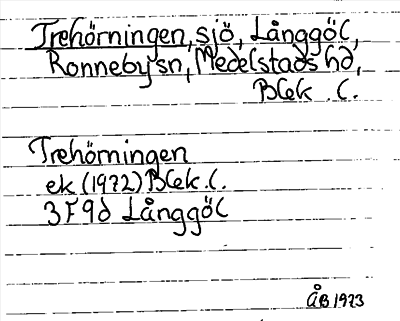 Trehörningen, sjö, Långgöl,
Ronneby sn, Medelstads hd,
Blek. l.
Trehörningen
ek (1972) Blek. l.
3F9d Långgöl
ÅB 1973